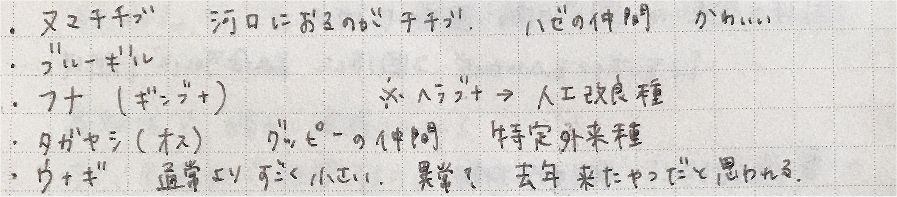 ・ヌマチチブ 河口におるのがチチブ. ハゼの仲間 かわいい
・ブルーギル
・フナ (ギンブナ) ※ヘラブナ→人工改良種
・タガヤシ(オス) グッピーの仲間 特定外来種
・ウナギ 通常よりすごく小さい. 異常? 去年来たやつだと思われる.